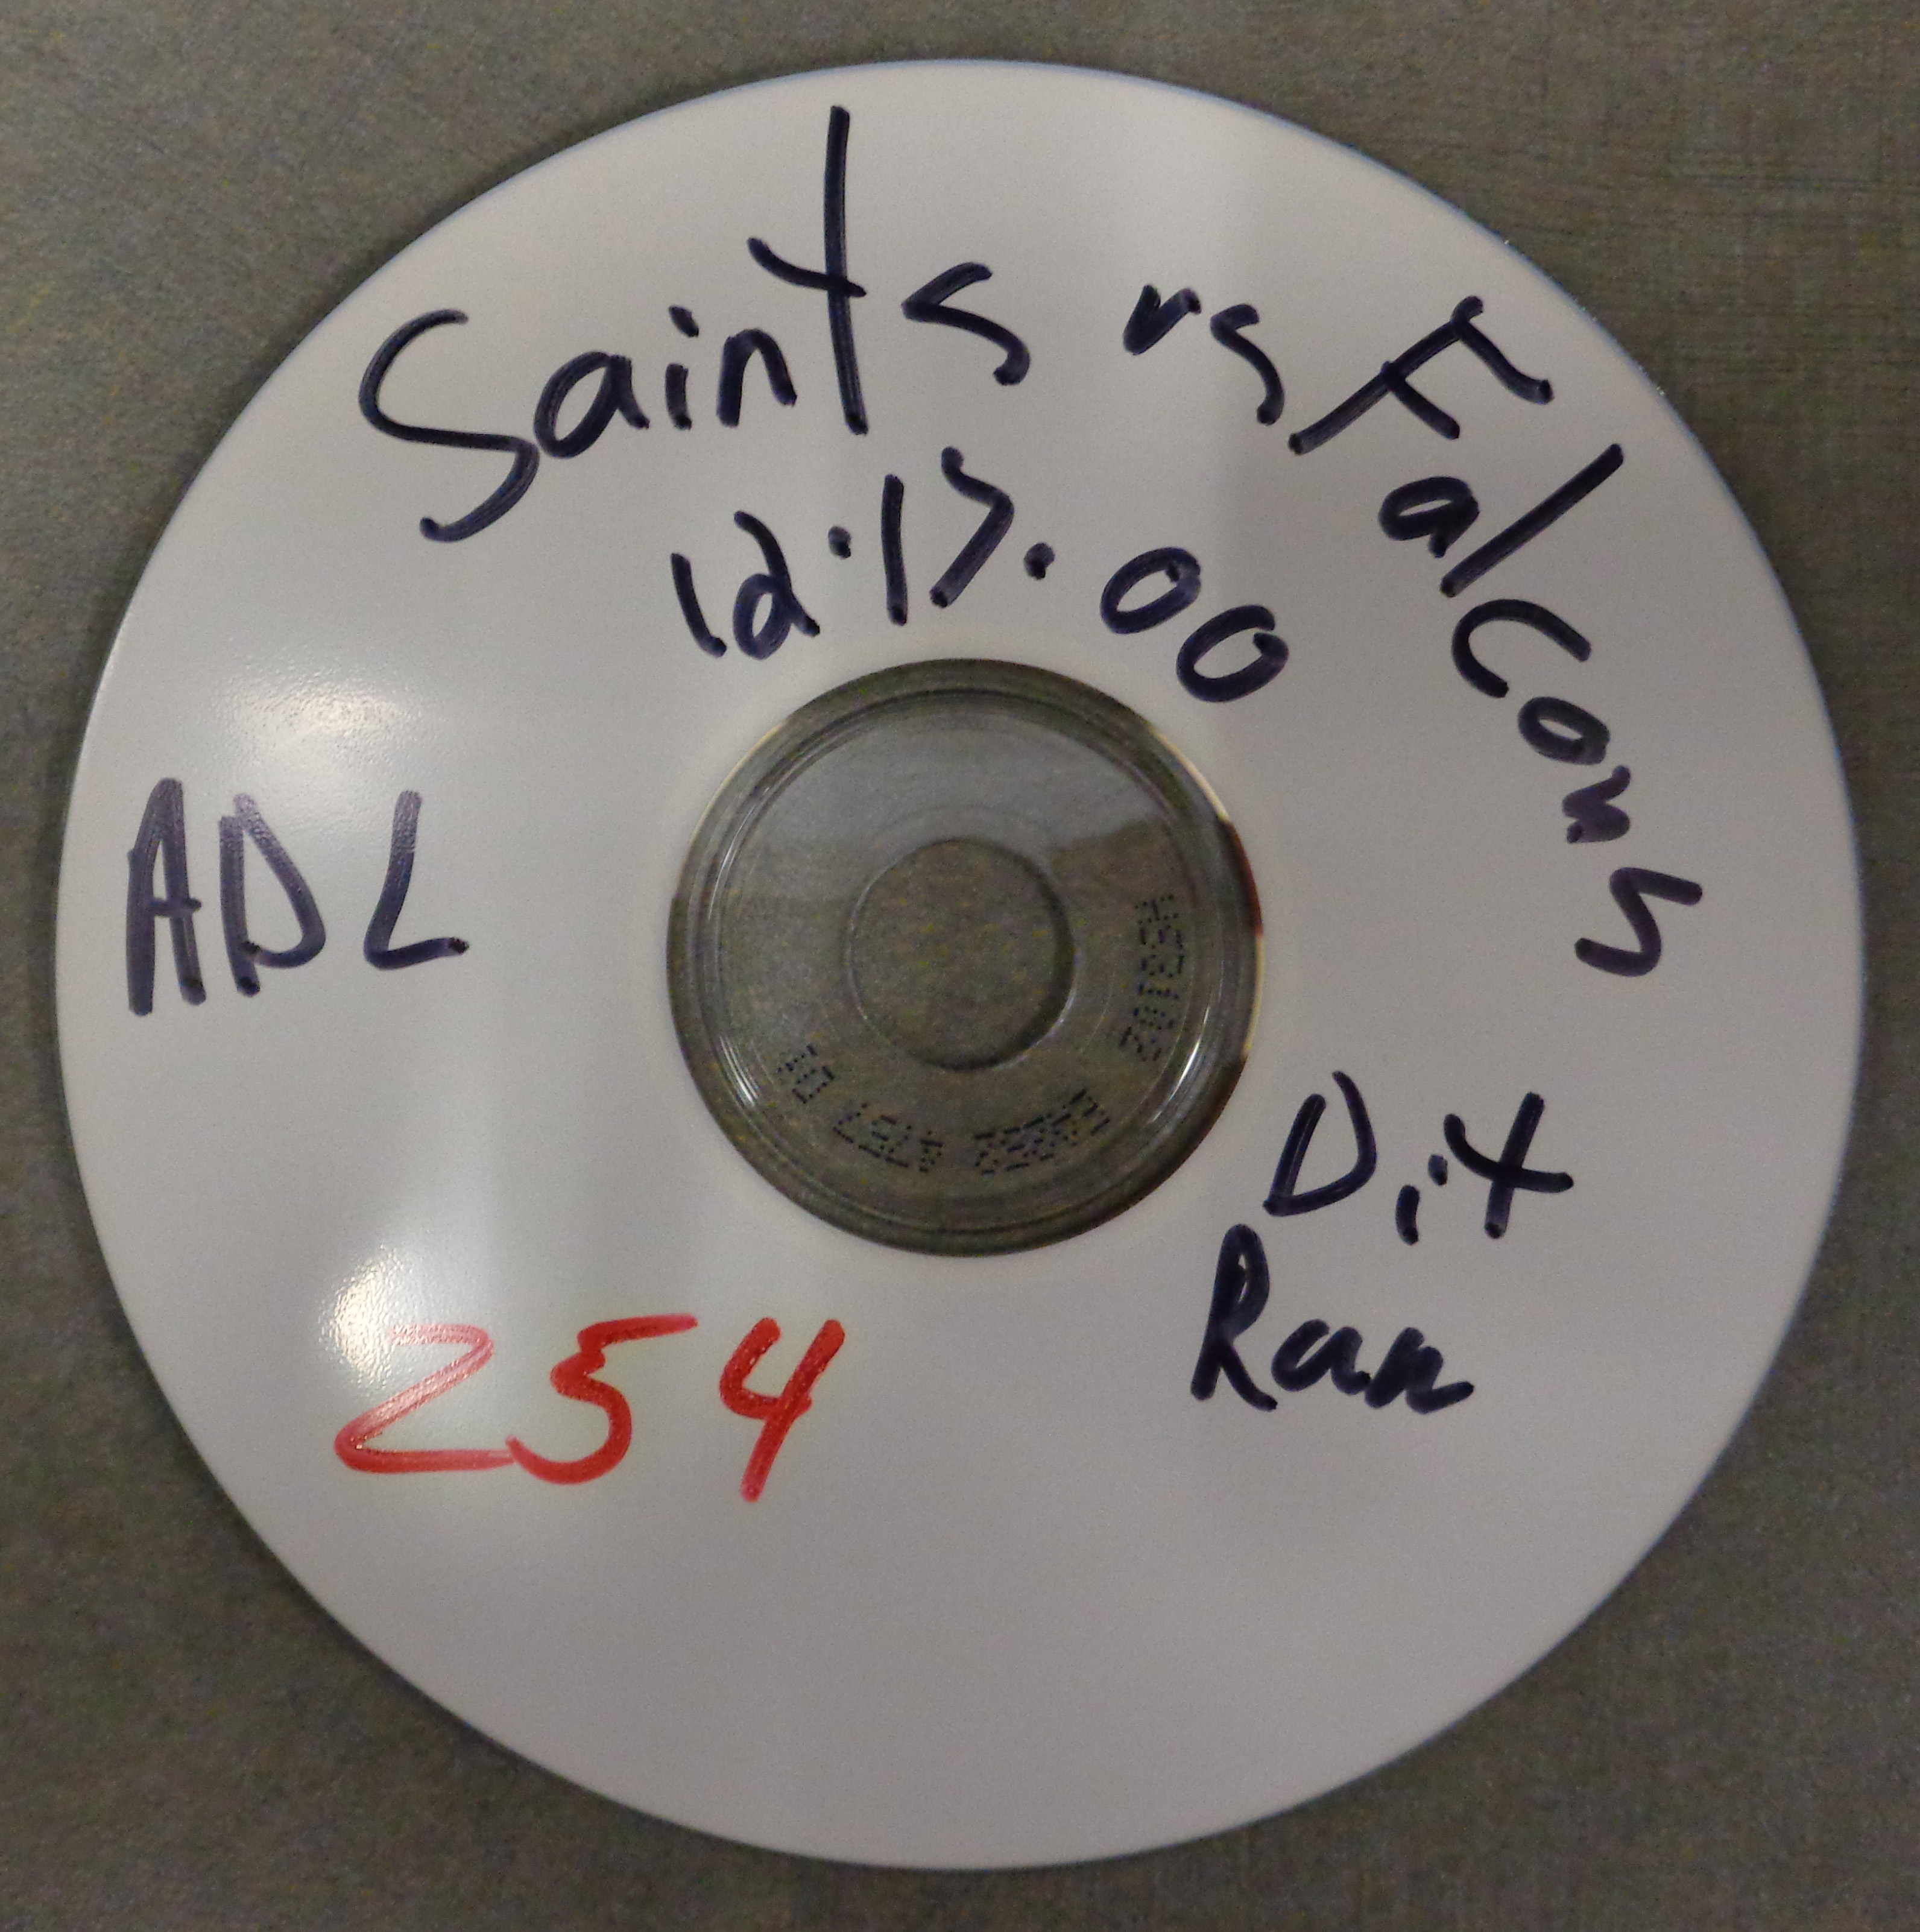 Saints vs Falcons
12.17.00
ADL
Dit
Ran
254